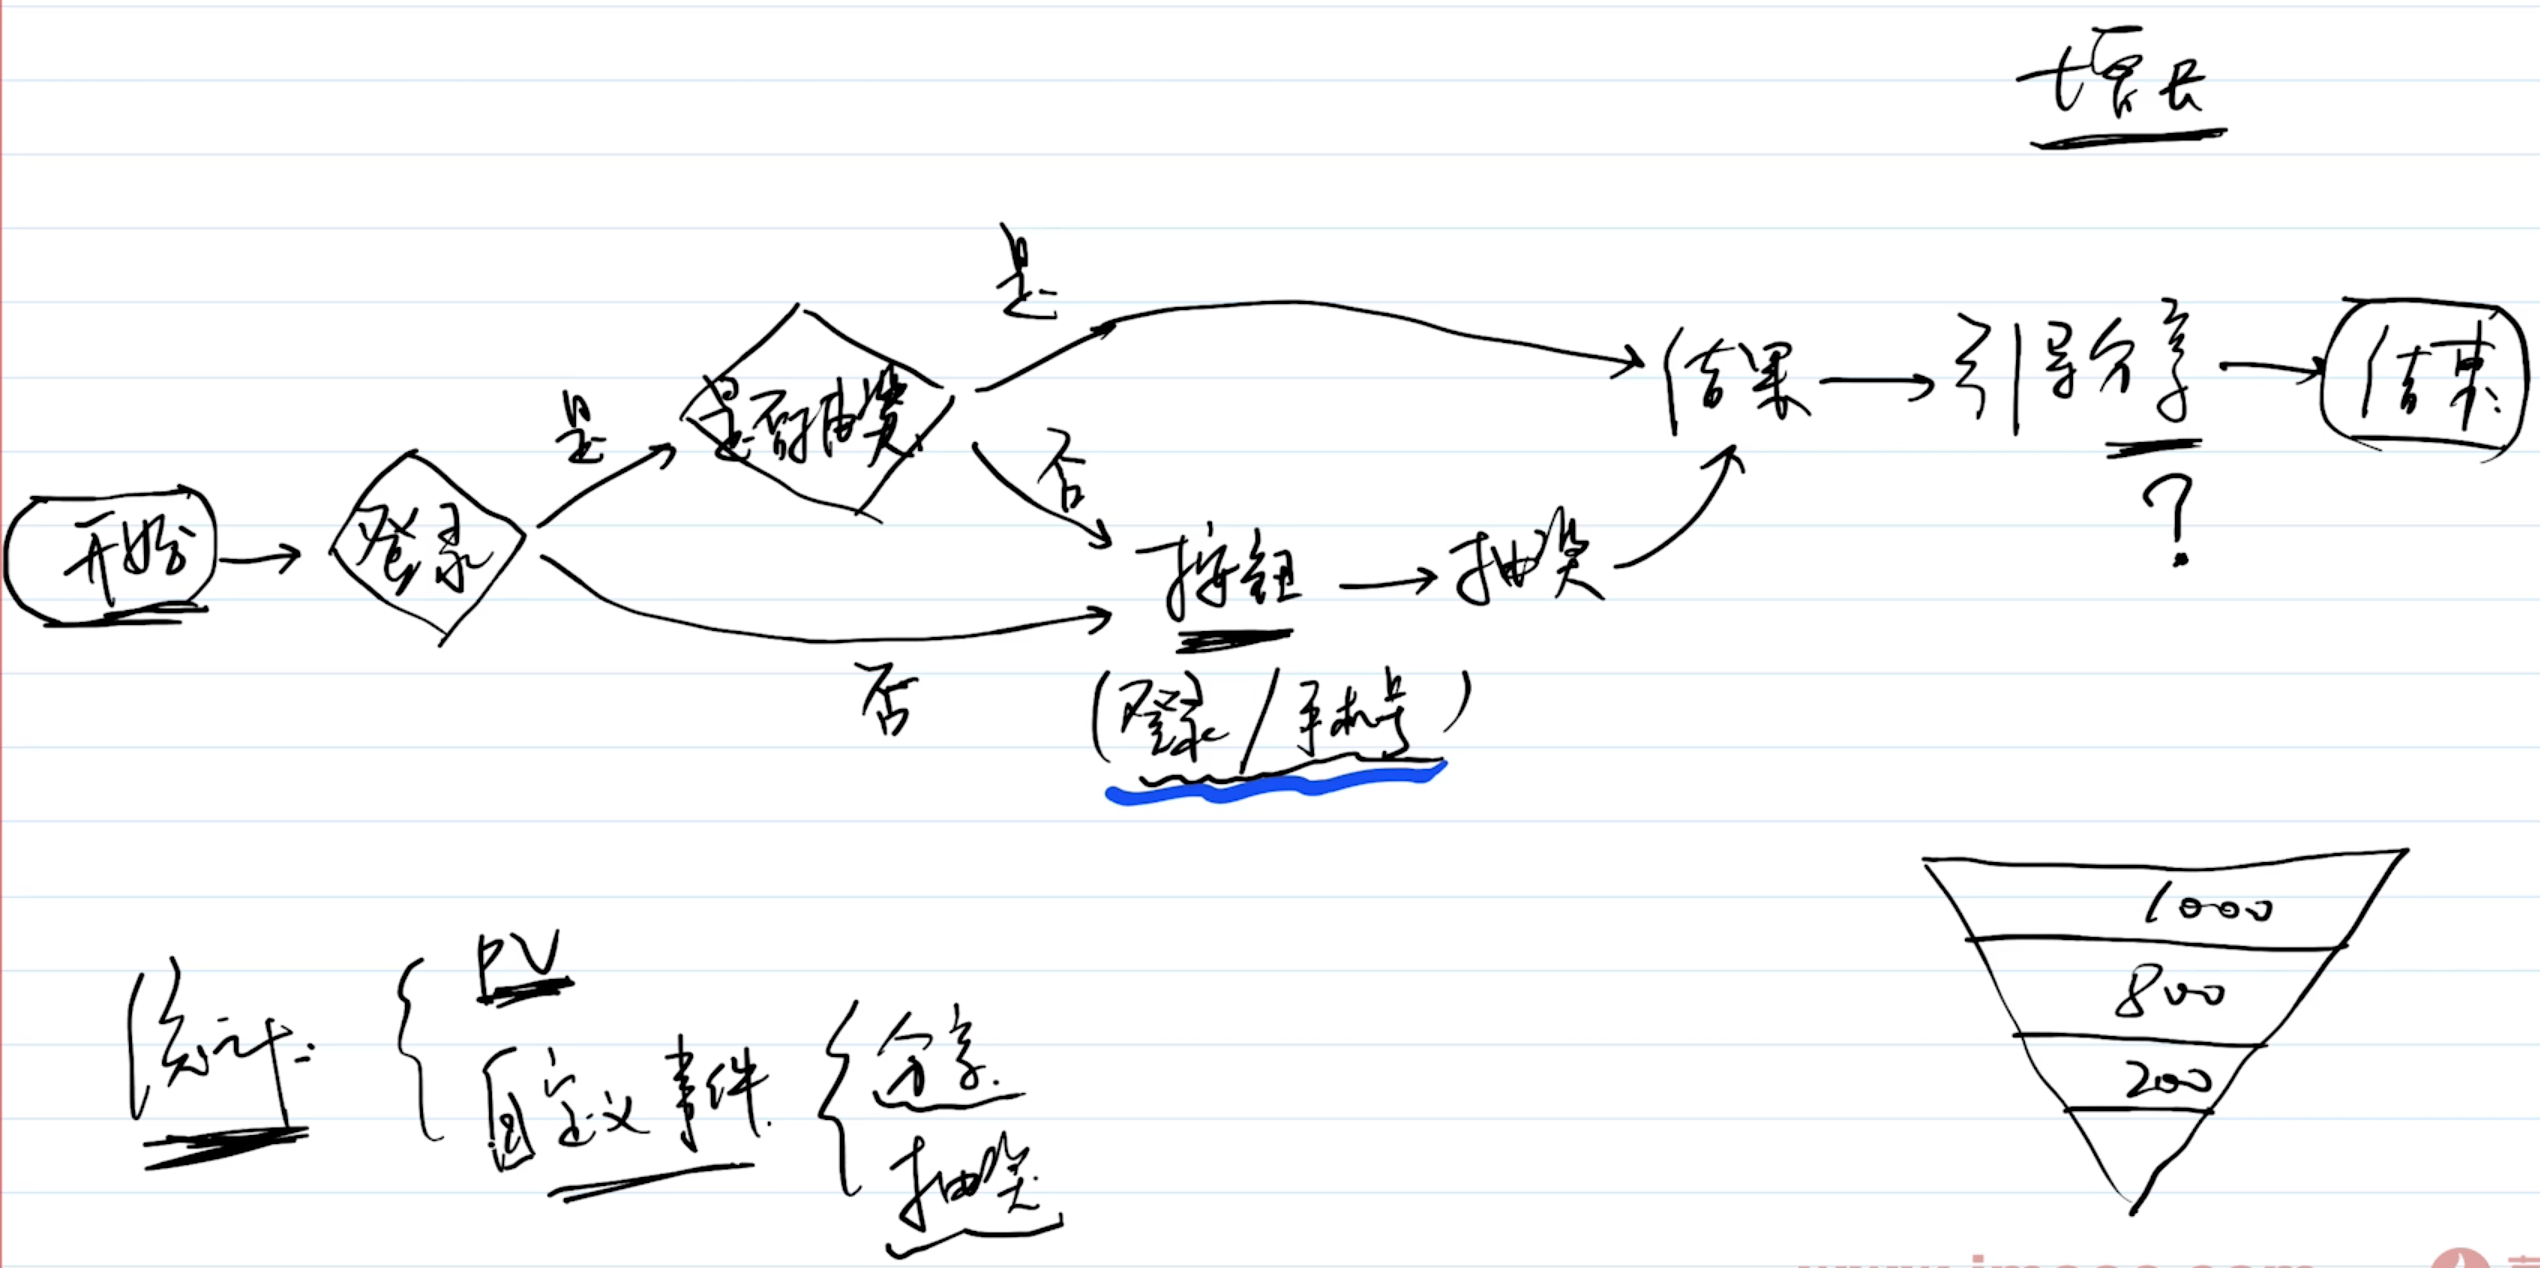 增长
是
开始
登录
是
是否抽奖
否
结果
引导分享
结束
?
按钮
抽奖
否
(登录/手机号)
1000
800
200
统计:
PV
自定义事件
分享
抽奖
www.imooc.com